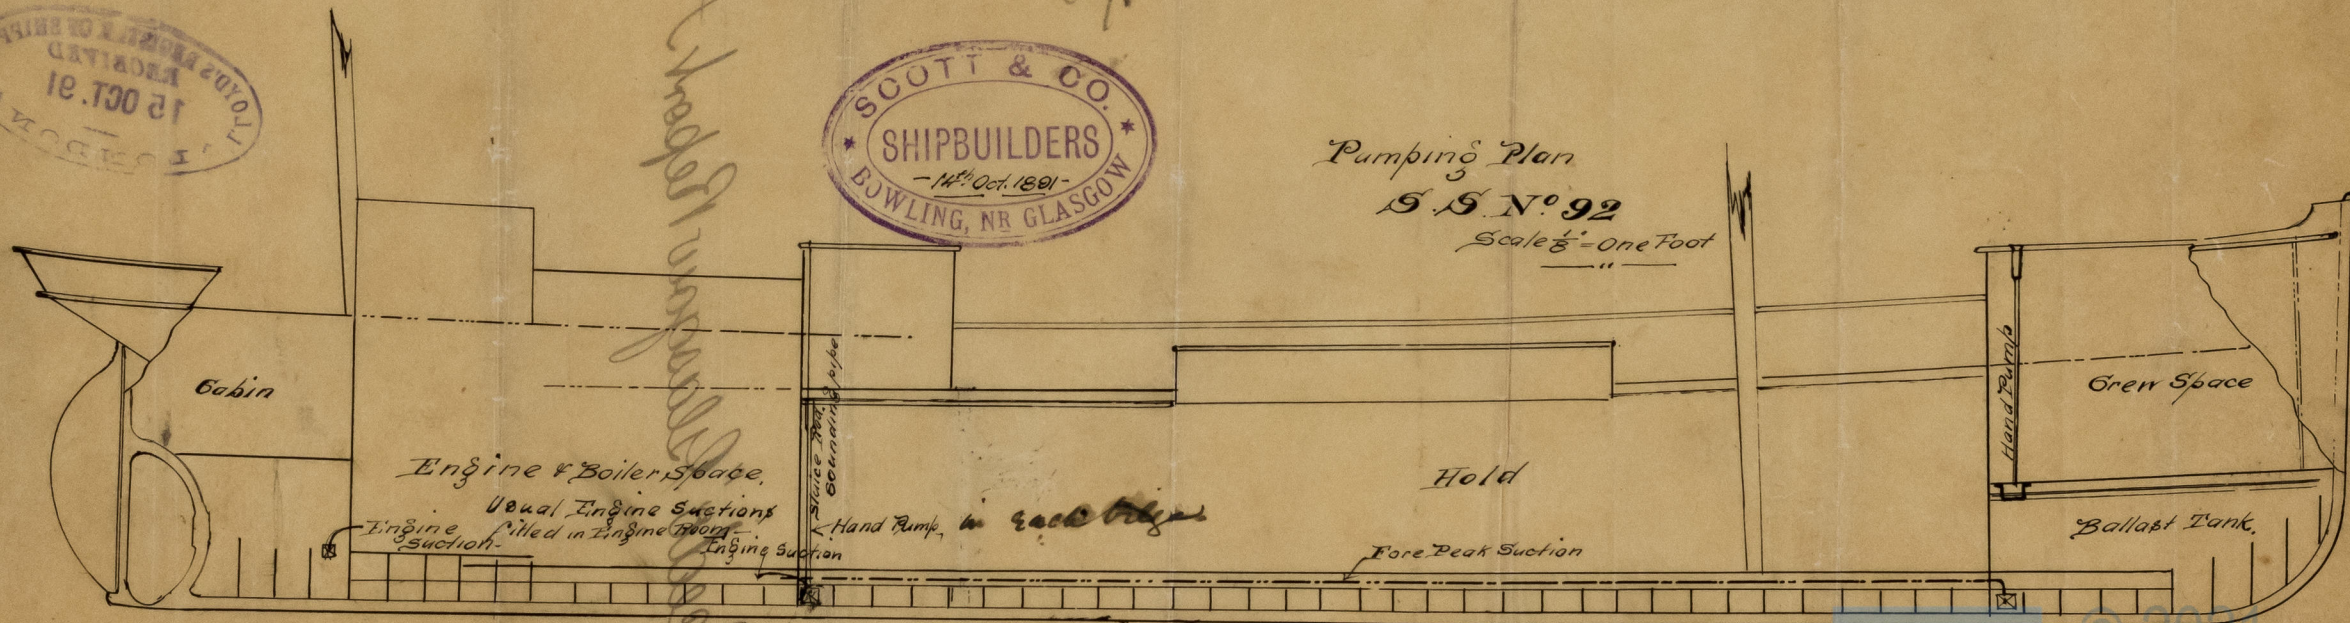 LLOYD'S REGISTER OF SHIPP
RECEIVED
15 OCT. 91
LONDON
SCOTT & CO.
SHIPBUILDERS
-14th Oct. 1891-
BOWLING, NR GLASGOW
Pumping Plan
S.S. No 92
Scale 1/8" = One Foot
Glasgow Report
Cabin
Engine & Boiler Space.
Usual Engine Suctions
fitted in Engine Room
Engine
Suction
Engine Suction
Sluice Rod.
Sounding pipe
Hand Pump, in each bilge
Hold
Fore Peak Suction
Hand Pump
Crew Space
Ballast Tank.
© 2021